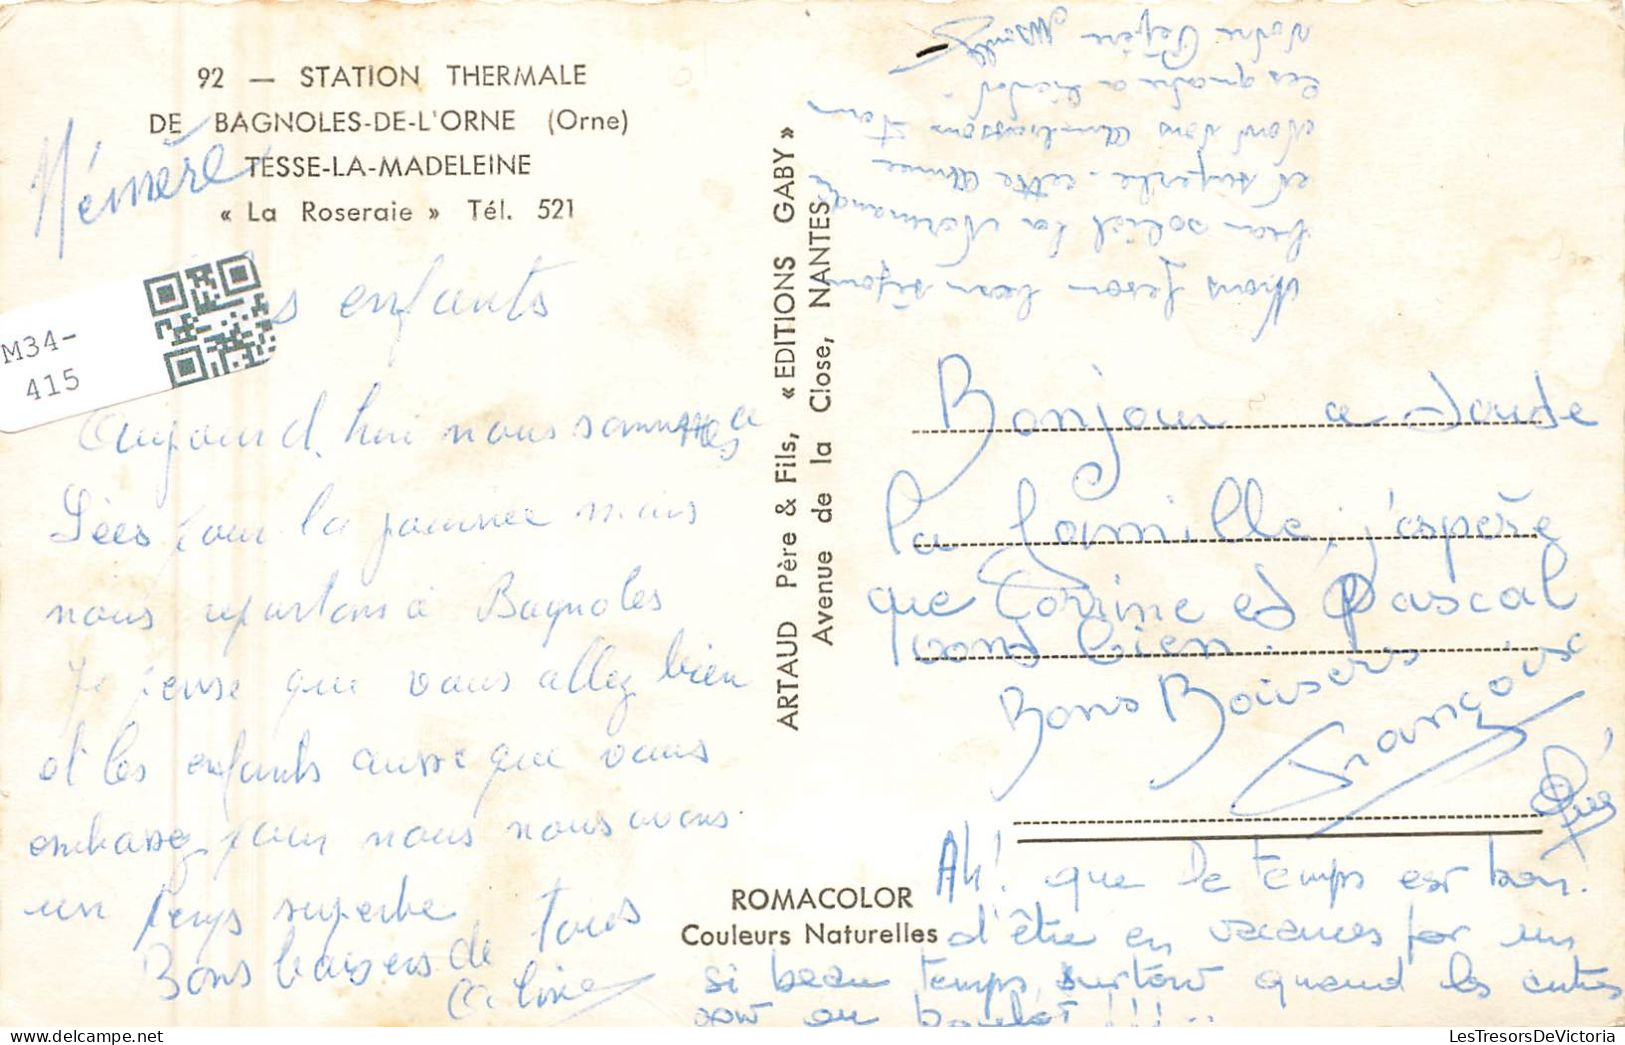 92 — STATION THERMALE
DE BAGNOLES-DE-L'ORNE (Orne)
TESSE-LA-MADELEINE
« La Roseraie » Tél. 521
Mémère
M34-
415
s enfants
Aujourd'hui nous sommes a
Sées pour la journee mais
nous repartons à Bagnoles
Je pense que vous allez bien
et les enfants aussi que vous
embassez pour nous nous avons
un temps superbe
Bons baisers de tous
ARTAUD Père & Fils, « EDITIONS GABY »
Avenue de la Close, NANTES
bon séjour
beau soleil la Normandie
et superbe cette
les quatre a bientot
votre Pépère
Bonjour a toute
la famille, j'espère
que Corrine et Pascal
vont bien.
Bons Baisers
Françoise
Ah! que De temps est bon.
d'être en vacances par un
si beau temps surtout quand les autres
sont au boulot !!!...
ROMACOLOR
Couleurs Naturelles
LesTresorsDeVictoria.com